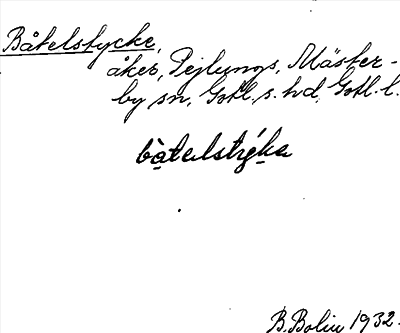 Båtelstycke,
åker, Pejlungs, Mäster-
by sn, Gotl. s. hd, Gotl. l.
båtelstýka
B. Bolin 1932.